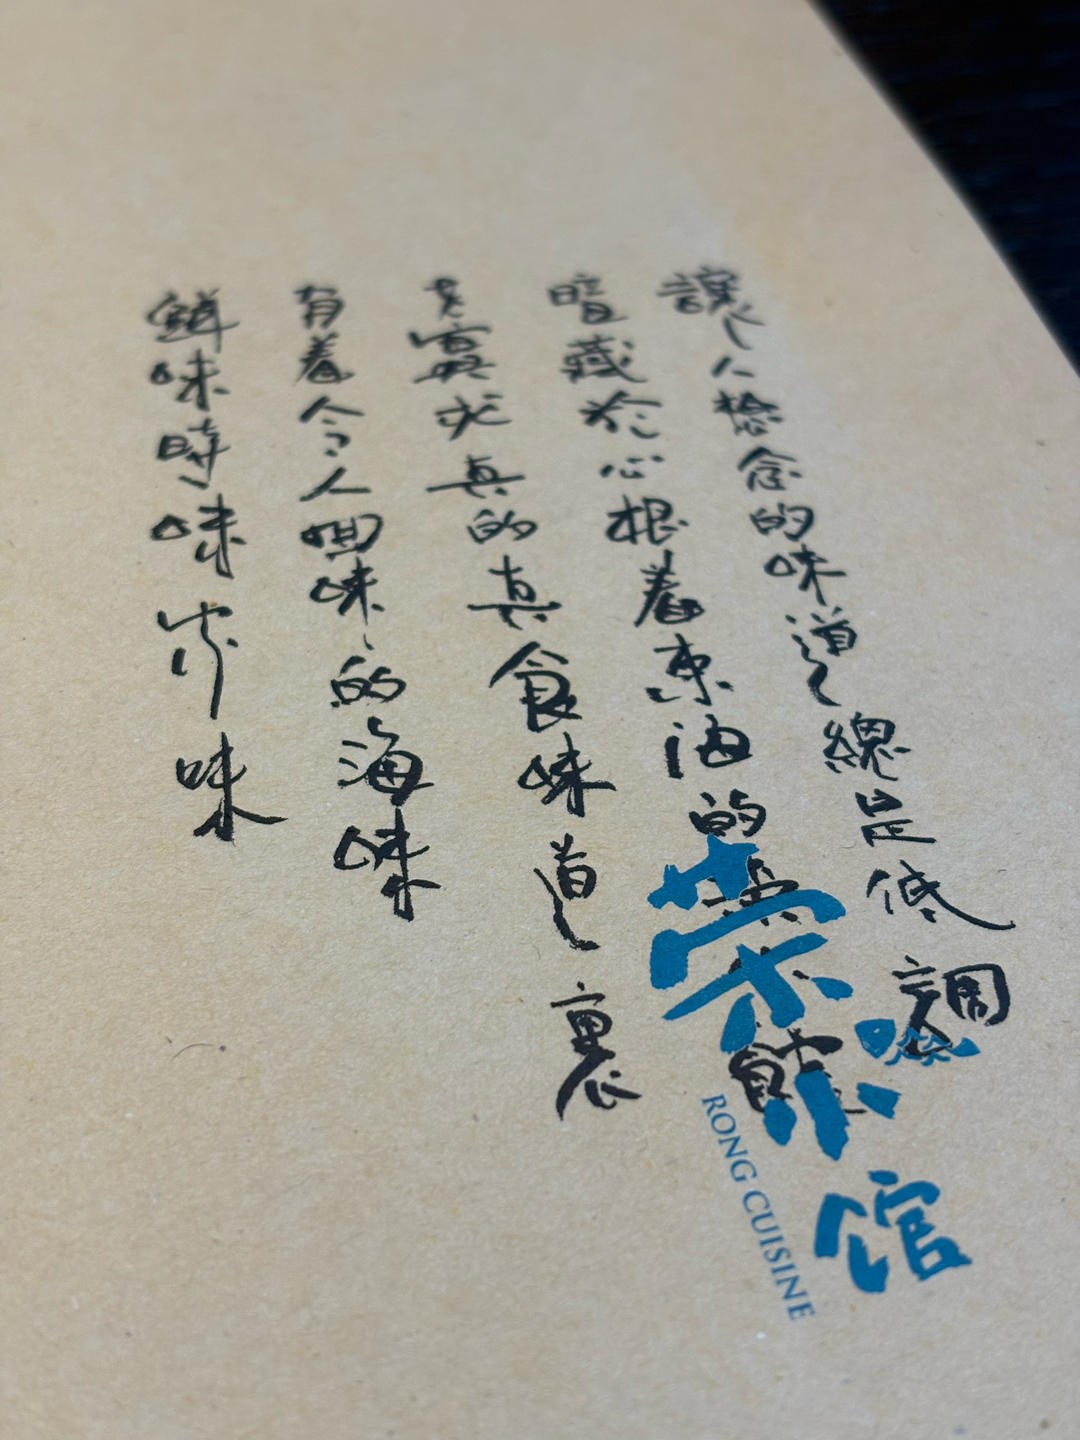 讓人念的味道總是低調
暗藏於心根着東海的
求真的真食味道裏
有着令人回味的海味
鮮味時味家味
荣小馆
RONG CUISINE